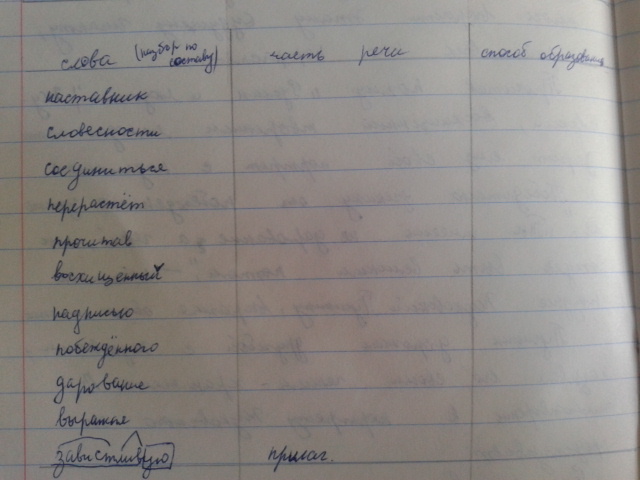 слова (разбор по составу) часть речи способ образования
наставник
словесности
соединиться
перерастёт
прочитав
восхищенный
надписью
побеждённого
дарование
выражая
завистливую прилаг.